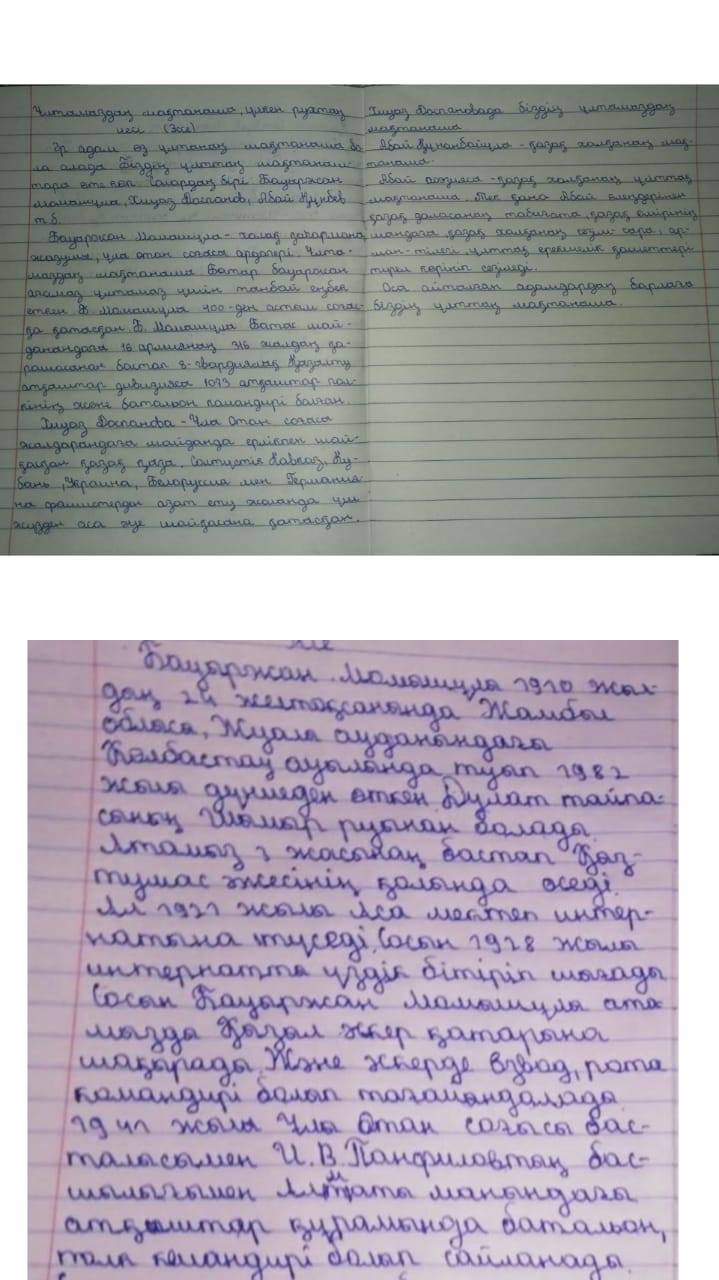 Ұлтымыздың мақтанышы, үлкен рухтың
иесі (Эссе)
Әр адам өз ұлтының мақтанышы бо-
ла алады. Біздің ұлттың мақтаныш-
тары өте көп. Солардың бірі Бауыржан
Момышұлы, Хиуаз Доспанов, Абай Құнбев
т.б.
Бауыржан Момышұлы - халық қаһарманы,
жазушы, ұлы отан соғысы ардагері. Ұлты-
мыздың мақтанышы Батыр бауыржан
атамыз ұлтымыз үшін талбай еңбек
еткен. Б. Момышұлы 200-ден астам соғыс-
қа қатысқан. Б. Момышұлы Батыс май-
данындағы 16 армияның 316 жалдың қа-
рашасынан бастап 8-гвардиялық Қызылту
атқыштар дивизияса 1073 атқыштар пол-
кінің және батальон командирі болған.
Хиуаз Доспанова - Ұлы Отан соғысы
жылдарындағы майданда ерлікпен шай-
қасқан қазақ қызы. Солтүстік Кавказ, Ку-
бань, Украина, Белоруссия мен Германия-
ны фашистерден азат ету жолында үш
жүзден аса әуе шайқасына қатысқан.
Хиуаз Доспановада біздің ұлтымыздың
мақтанышы
Абай Құнанбайұлы - қазақ халқының мақ-
танышы.
Абай поэзияса - қазақ халқының ұлттық
мақтанышы. Тек қана Абай өлеңдерінен
қазақ даласының табиғаты, қазақ өмірінің
мандағы қазақ халқының сезім- сыры, ар-
ман-тілегі, ұлттық ерекшелік қасиеттері
түгел көрініп сезіледі.
Осы айтылған адамдардың барлығы
біздің ұлттың мақтанышы.
Бауыржан Момышұлы 1910 жыл-
дың 24 желтоқсанында Жамбыл
облыса, Жуалы ауданындағы
Көлбастау ауылында туып 1982
жылы дүниеден өткен. Дулат тайпа-
сының Шымыр руынан болады.
Атамыз 3 жасынан бастап Қыз-
тумас әжесінің қолында өседі.
Ал 1921 жылы Аса мектеп интер-
натына түседі. Сосын 1928 жылы
интернатты үздік бітіріп шығады
Сосын Бауыржан Момышұлы ата-
мызды Қызыл әскер қатарына
шақырады. Және әскерде взвод, рота
командирі болып тағайындалады.
1941 жылы Ұлы Отан соғысы бас-
талысымен И.В. Панфиловтың бас-
шылығымен Алматы маңындағы
атқыштар құрамында батальон,
полк командирі болып сайланады.